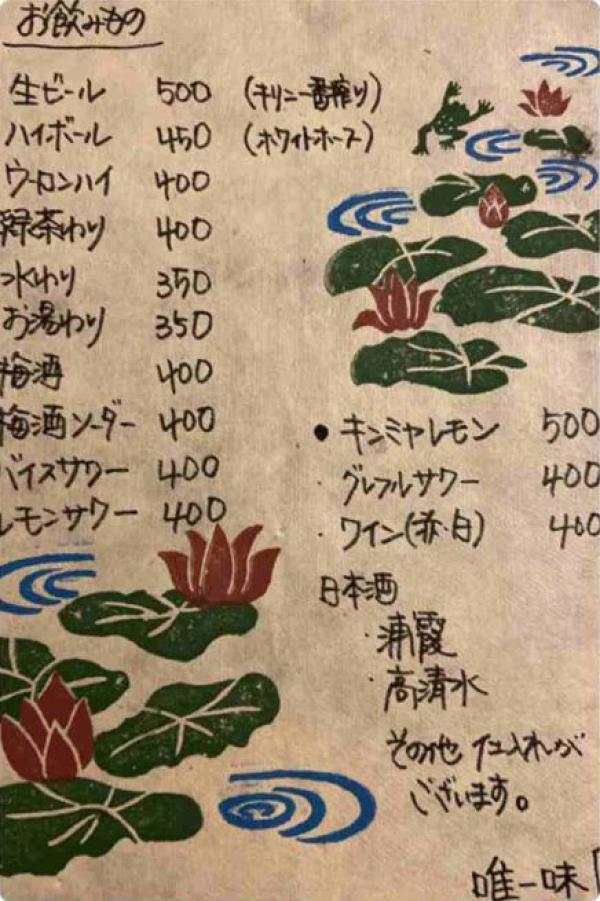 お飲みもの
生ビール 500 (キリン一番搾り)
ハイボール 450 (ホワイトホース)
ウーロンハイ 400
緑茶わり 400
水わり 350
お湯わり 350
梅酒 400
梅酒ソーダー 400
バイスサワー 400
レモンサワー 400
● キンミヤレモン 500
・グレフルサワー 400
・ワイン(赤・白) 400
日本酒
・浦霞
・高清水
その他 仕入れが
ございます。
唯一味